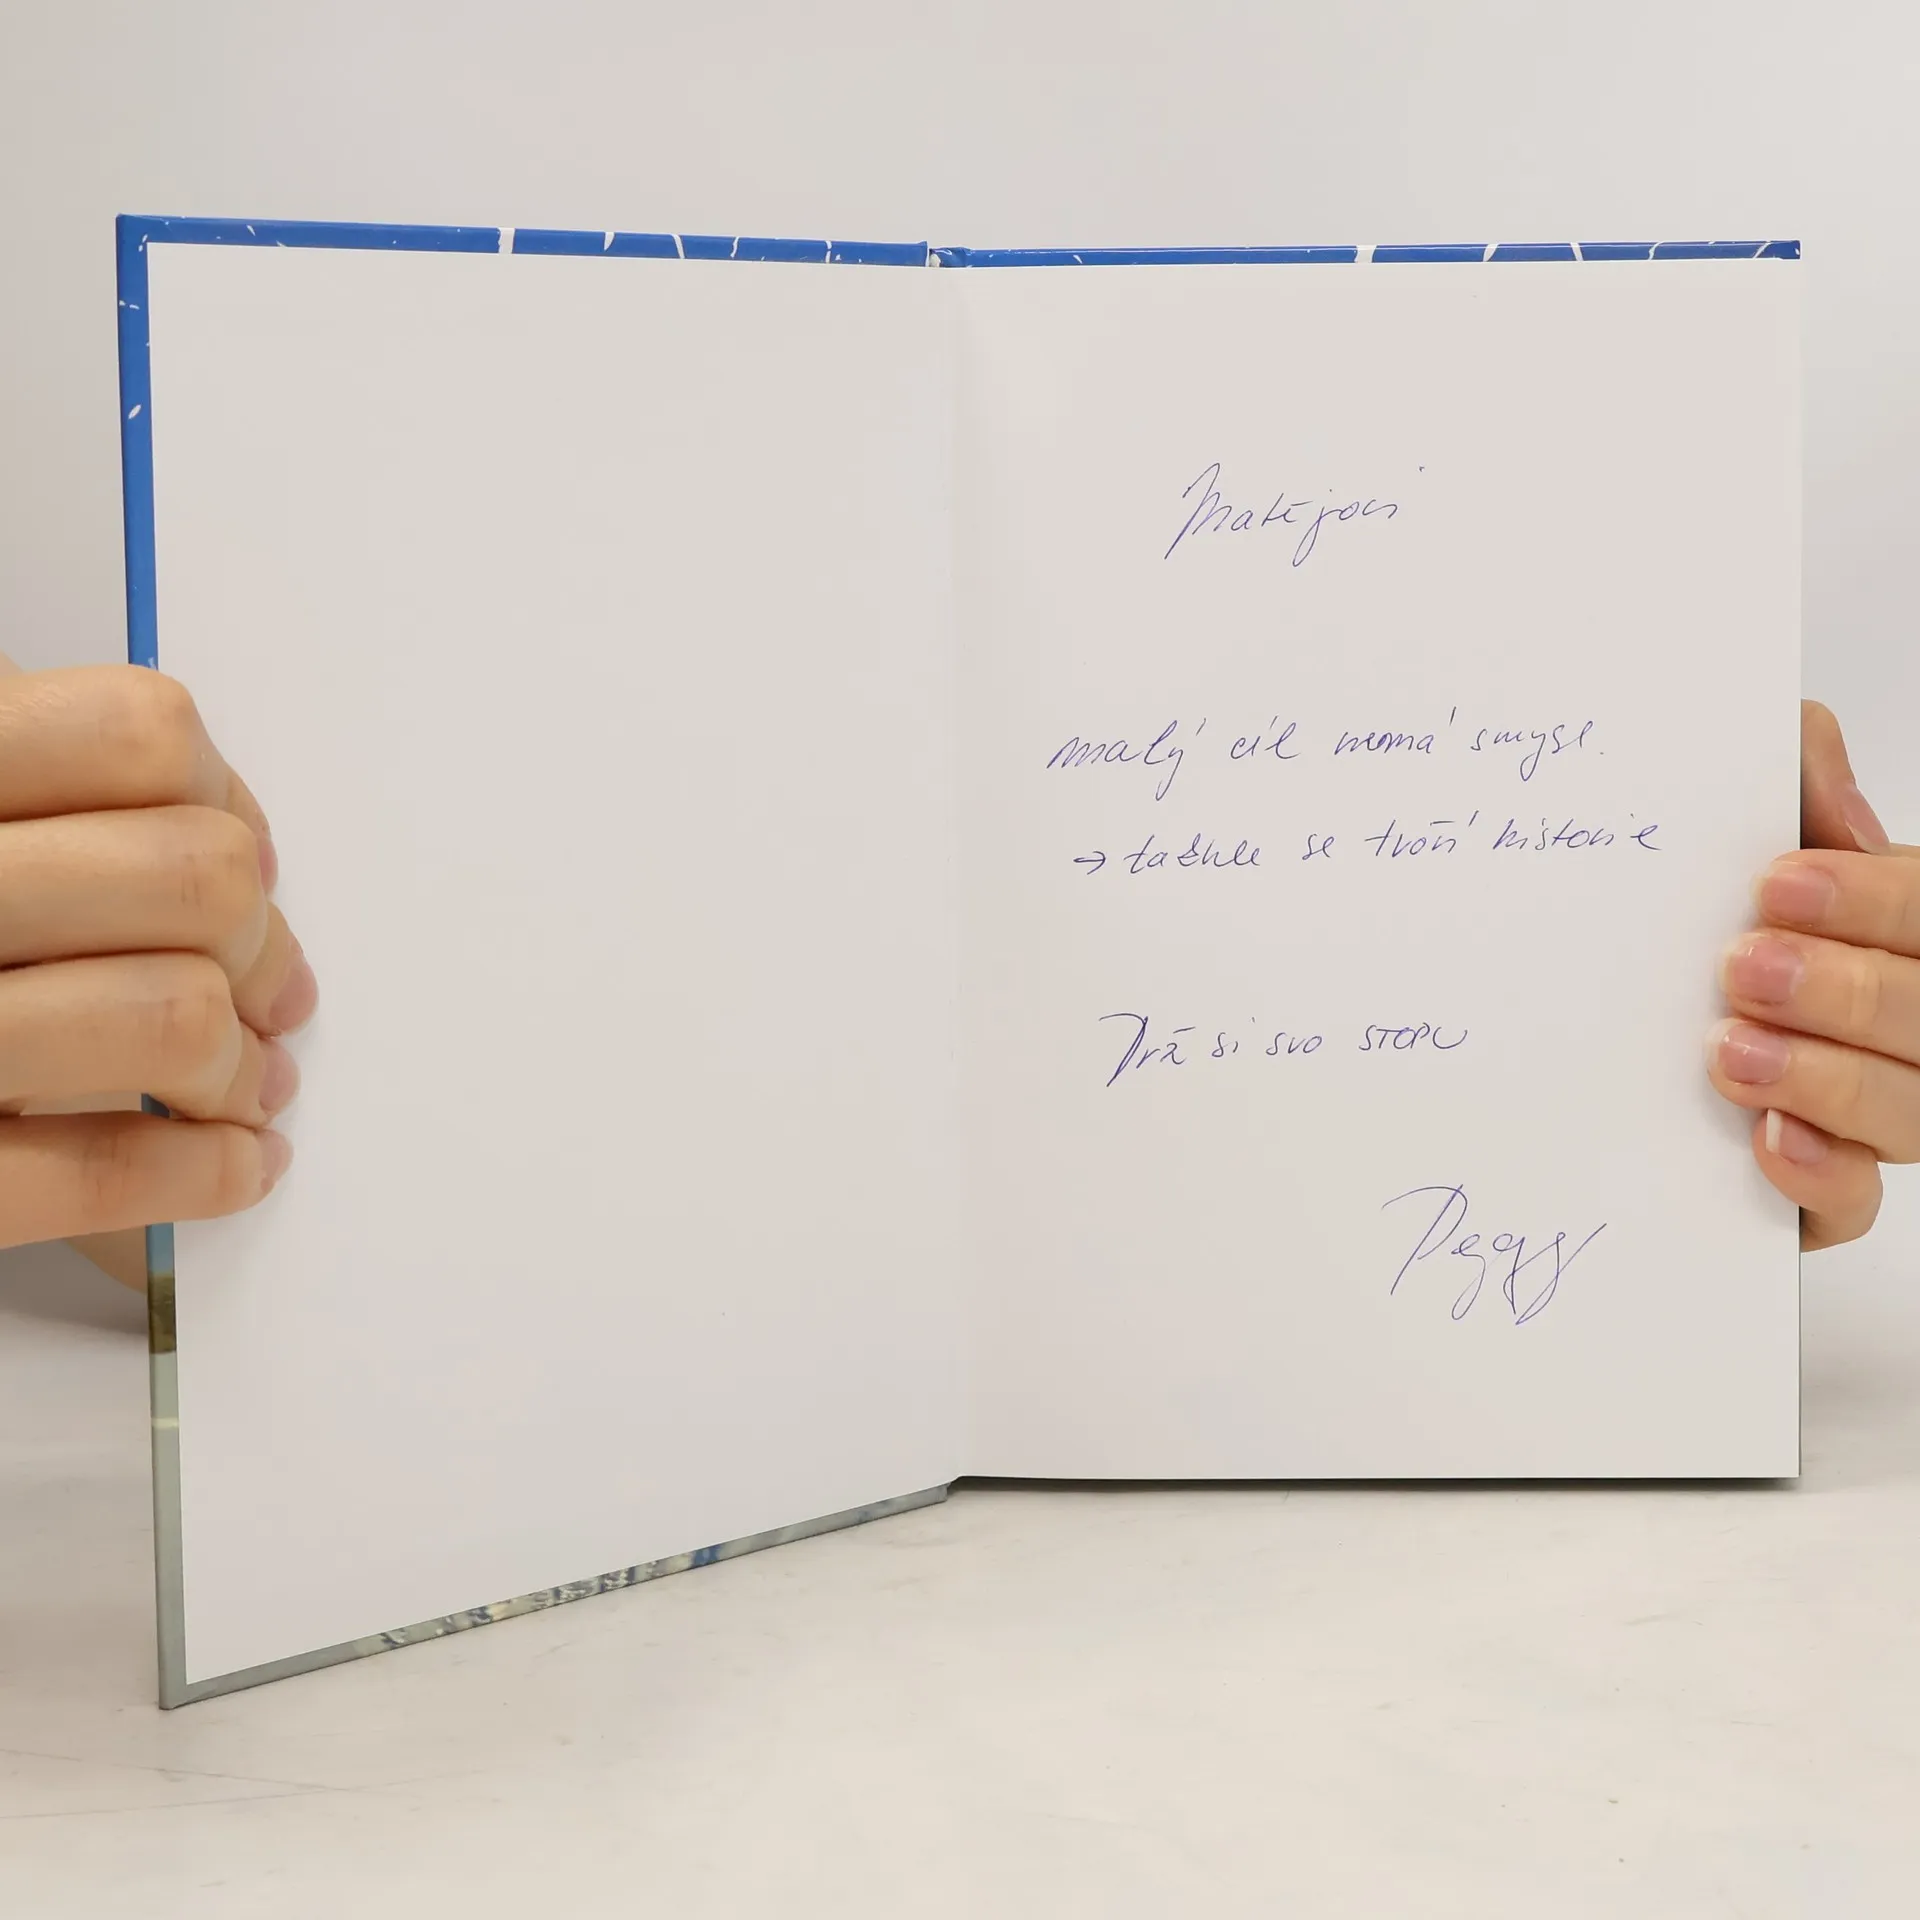 Matějovi
malý cíl nemá smysl.
→ takhle se tvoří historie
Drž si svo STOPU
Peggy